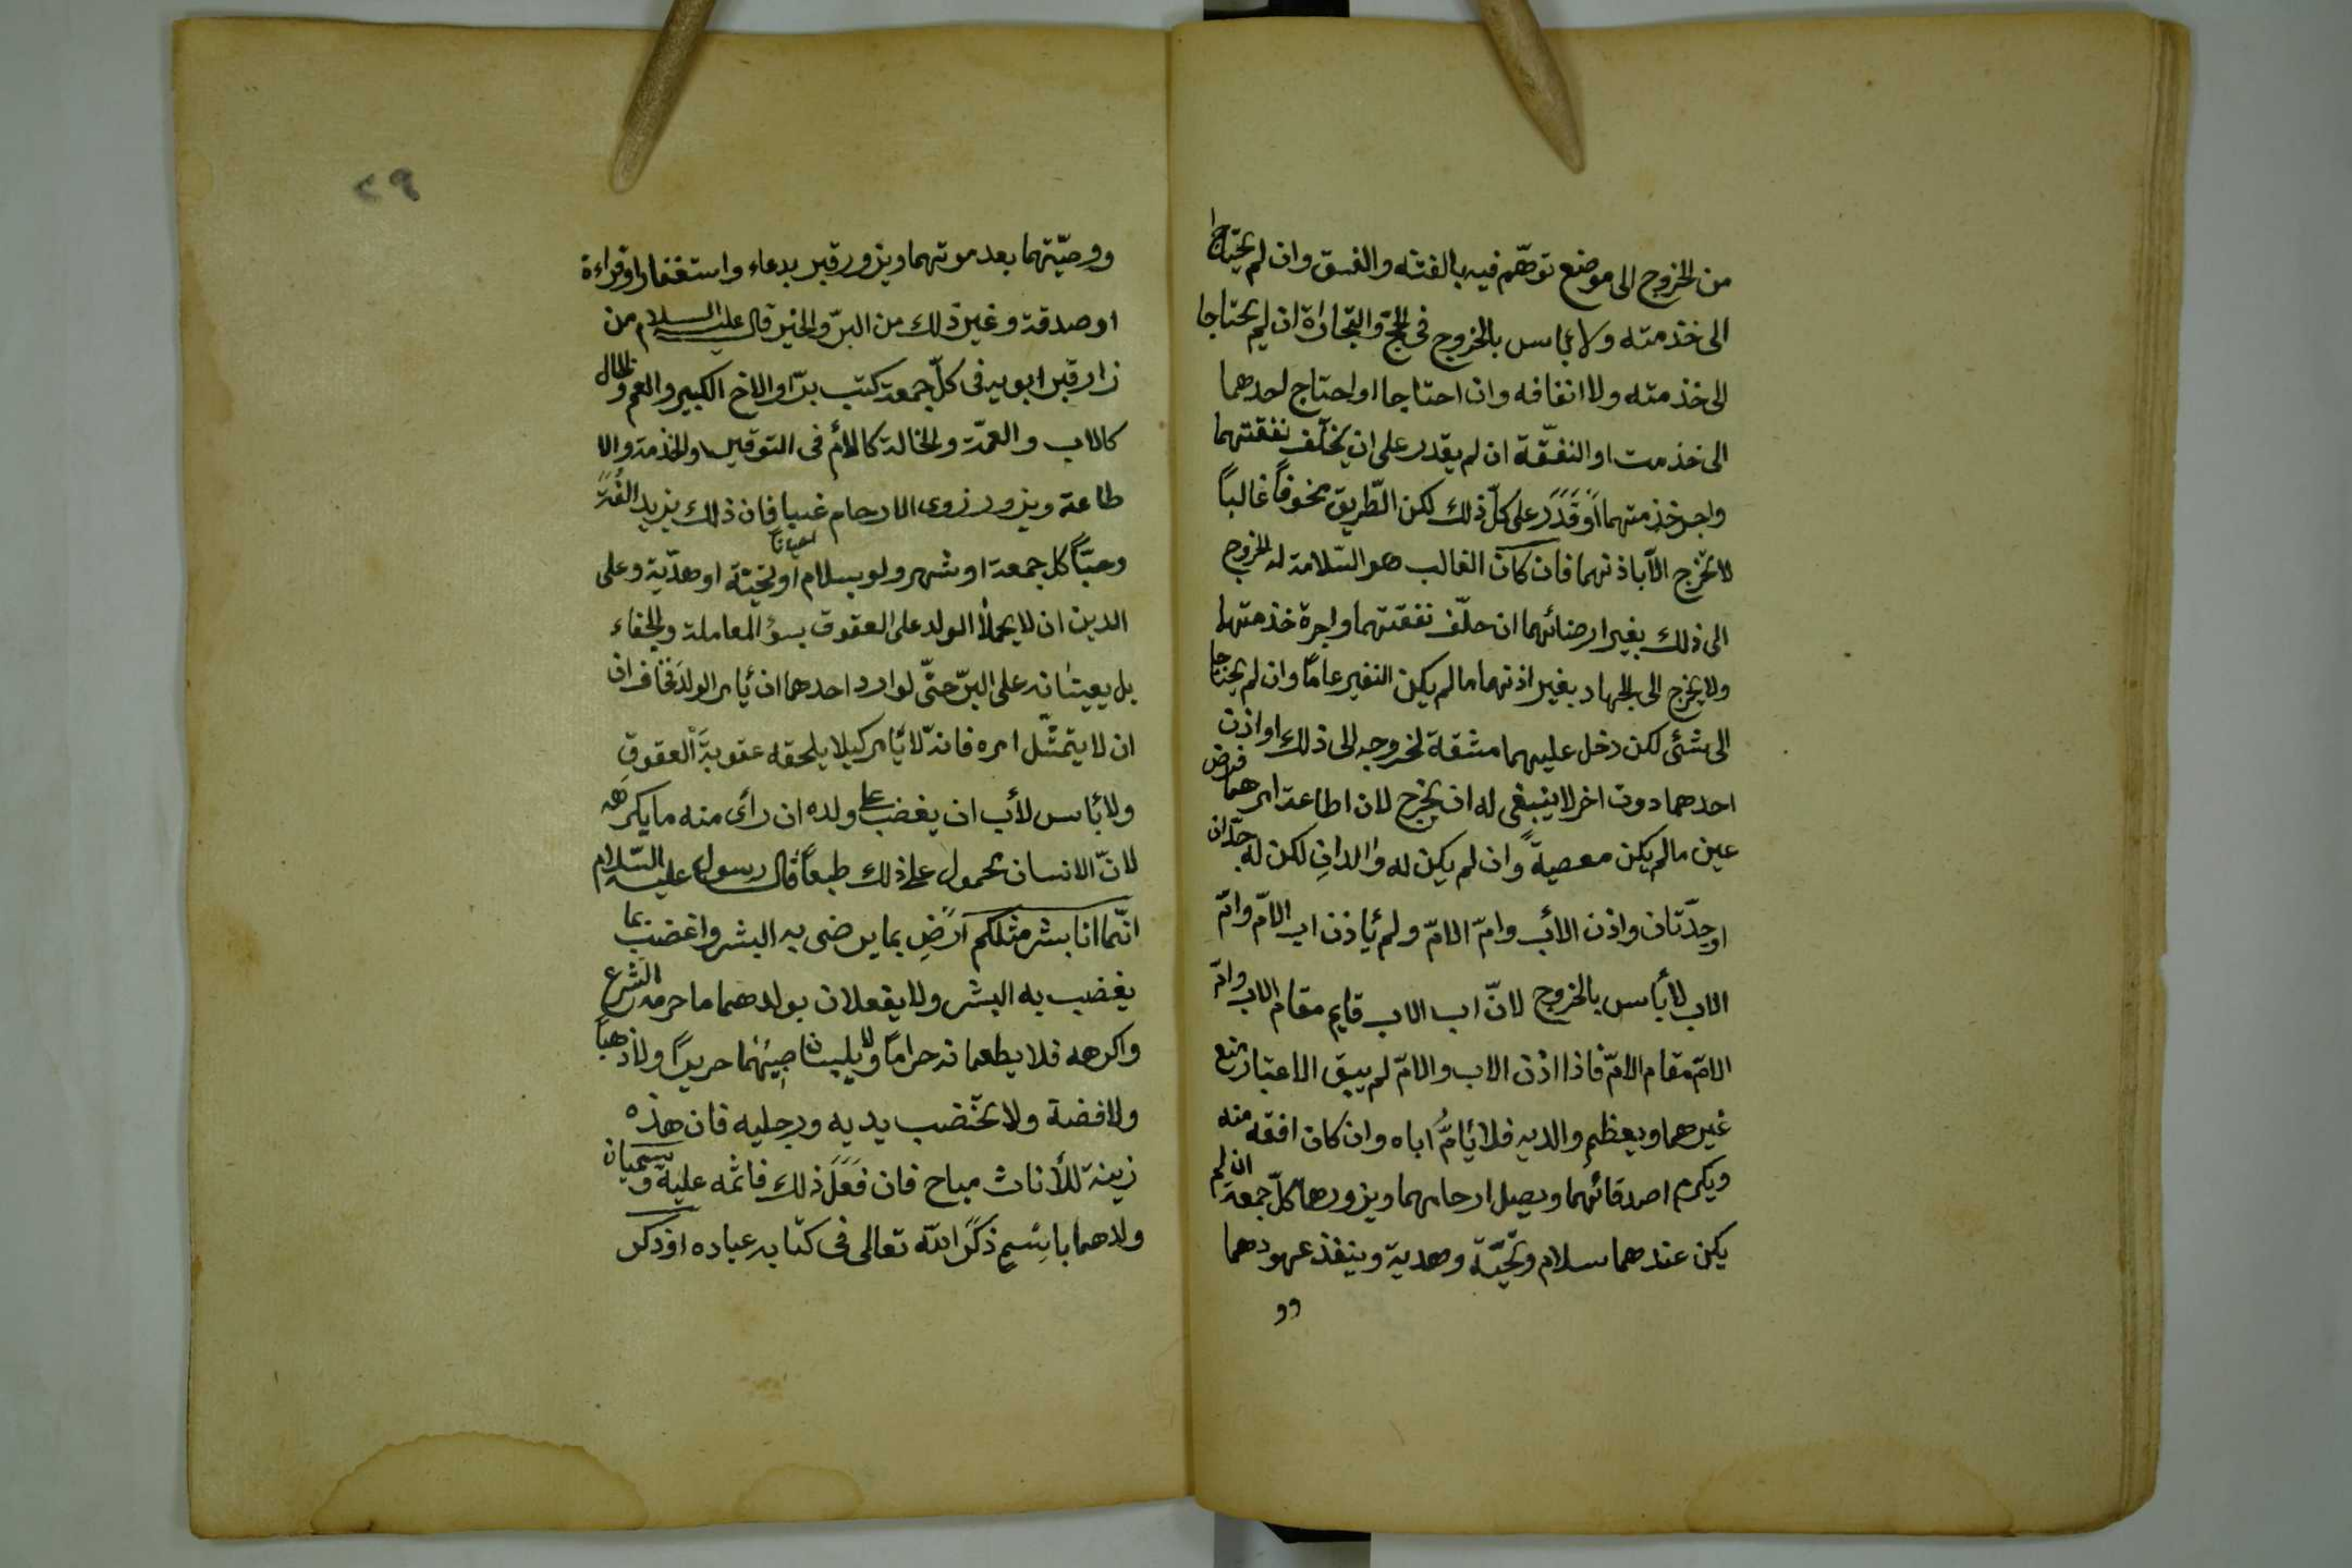 من الخروج الى موضع توهّم فيه بالفتنه والفسق وان لم يحتاجا
الى خذمته ولا بأس بالخروج فى الحجّ والتجاراة ان لم يحتاجا
الى خذمته ولا انفاقه وان احتاجا او احتاج احدهما
الى خذمت او النفقّة ان لم يقدر على ان يخلّف نفقتهما
واجر خذمتهما او قَدَرَ على كلّ ذلك لكن الطّريق مخوفاً غالباً
لا تخرج الّا باذنهما فان كان الغالب هو السّلامة له الخروج
الى ذلك بغير ارضائهما ان خلّف نفقتهما واجرة خذمتهما
ولا يخرج الى الجهاد بغير اذنهما ما لم يكن النفير عامّا وان لم يحتاجا
الى شئى لكن دخل عليهما مشقة لخروجه الى ذلك او اذن
احدهما دون اخر لا ينبغى له ان يخرج لان اطاعة امرهما فرض
عين ما لم يكن معصيةً وان لم يكن له والدانِ لكن له جدّان
او جدّتان واذن الأب وامّ الامّ ولم يأذن اب الامّ وامّ
الاب لا بأس بالخروج لانّ اب الاب قايم مقام الاب وامّ
الامّ مقام الامّ فاذا اذن الاب والامّ لم يبق الاعتبار بمنع
غيرهما ويعظم والديه فلا يأمّ اباه وان كان افقه منه
ويكرم اصدقائهما ويصل ارحامهما ويزورهما كلّ جمعة ان لم
يكن عندهما سلام وتحيّة وهدية وينفذ عهودهما
وو
٢٩
ووصيّتهما بعد موتهما ويزور قبر بدعاء واستغفار او قراءة
او صدقة وغير ذلك من البرّ والخير قال عليه السلام من
زار قبر ابويه فى كلّ جمعة كتب برّا والاخ الكبير والعم والخال
كالاب والعمّة والخالة كالأم فى التوقير والخذمة والا
طاعة ويزور زوى الارحام غبا فان ذلك يزيد الفُةً
وحبّاً كل جمعة او شهر ولو بسلام احيانا او تحيّة او هدّية وعلى
الدين ان لا يحملا الولد على العقوق بسؤ المعاملة والجفاء
بل يعينانه على البرّ حتّى لو ارد احدهما ان يأمر الولدَ فخاف ان
ان لا يتمثّل امره فانه لا يأمر كيلا يلحقه عقوبةَ العقوقِ
ولا بأس لأب ان يغضب على ولده ان رأى منه ما يكرهه
لانّ الانسان محمول على ذلك طبعاً قال رسول عليه السّلام
انّما انا بشر مثلكم ارضِ بما يرضى به البشر واغضب بما
يغضب به البشر ولا يفعلان بولدهما ما حرمه الشرع
واكرهه فلا يطعمانه حراماً ولا يلبسان صبيّهما حريراً ولا ذهباً
ولا فضة ولا تخضب يديه ورجليه فان هذه
زينة للأناث مباح فان فَعَلَ ذلك فاثمه عليه ويسميان
ولدهما باِسْمٍ ذَكَرَ الله تعالى فى كتابه عباده او ذكر